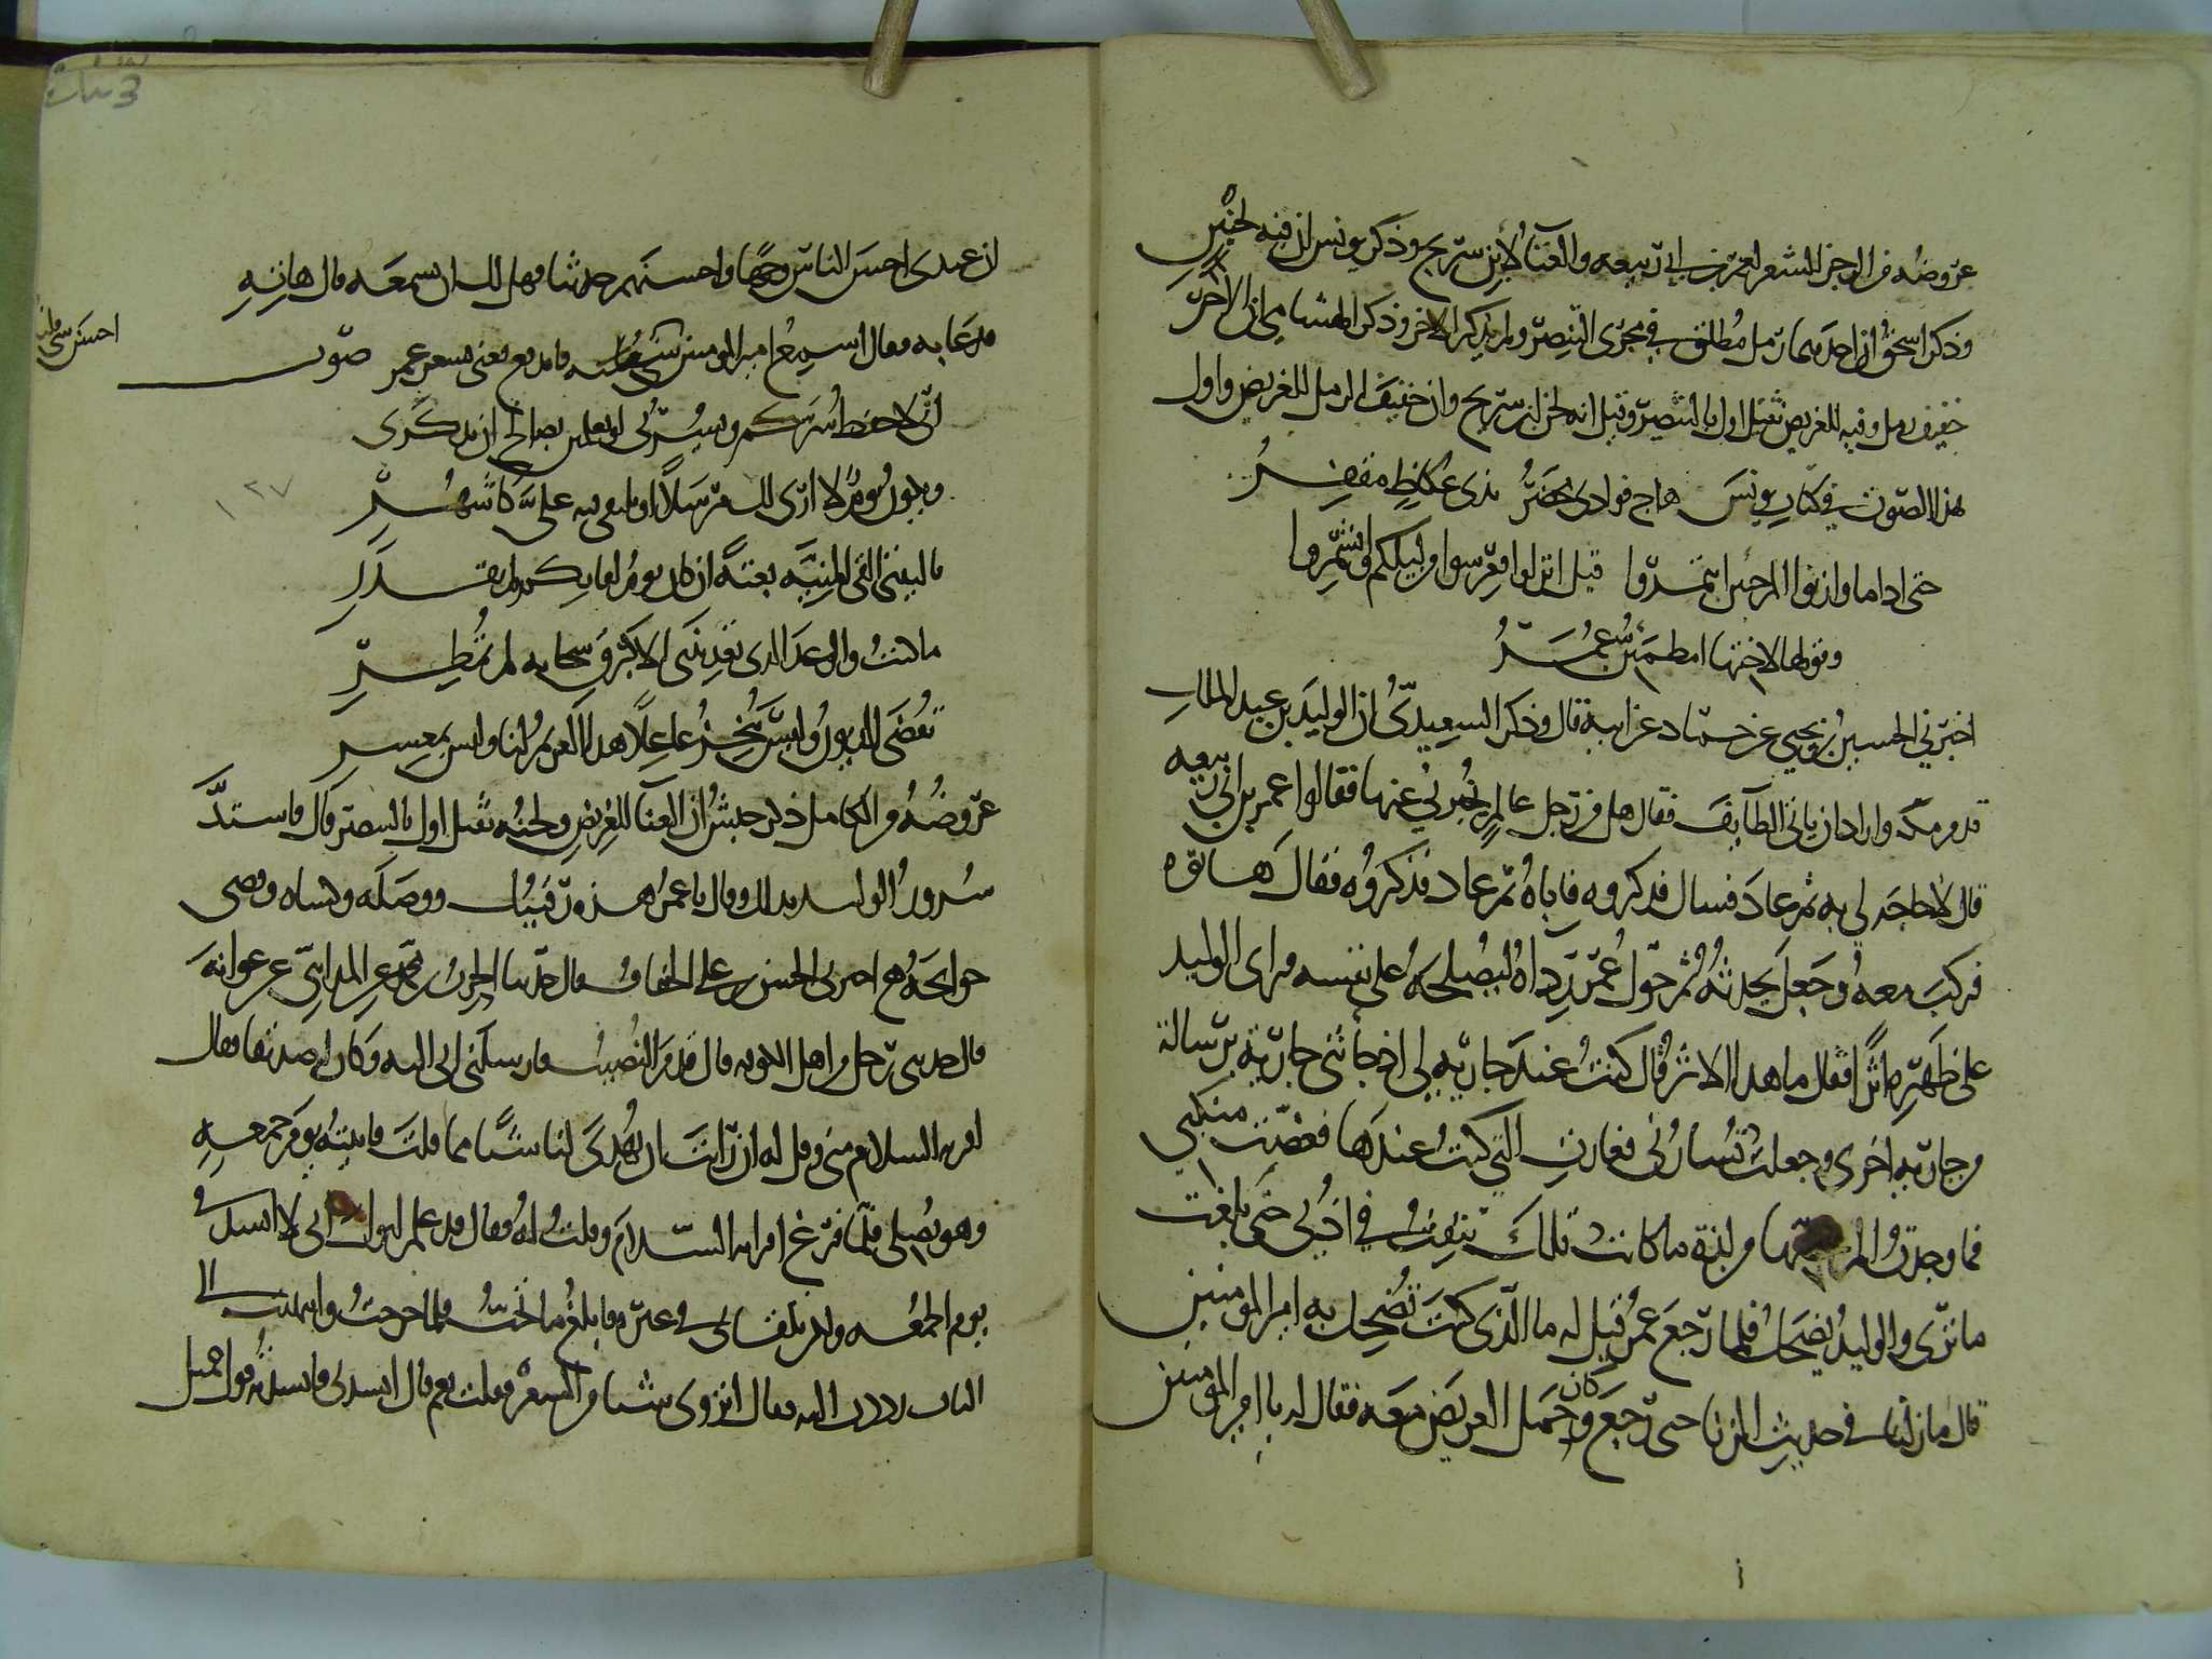 عروضه من الرجز الشعر لعمر بن ابي ربيعه والغنا لابن سريج وذكر يونس ان فيه لحنين
وذكر اسحق ان احدهما رمل مطلق في مجرى البنصر ولم يذكر الاخر وذكر الهشامي ان الاخر
خفيف رمل وفيه للغريض ثقيل اول بالبنصر وقيل انه لحن ابن سريج وان خفيف الرمل للغريض واول
هذا الصوت في كتاب يونس هاج فوادي محضر بذي عكاظ مقفر
حتى اذا ما وازنوا المرختين ائتمروا قيل انزلوا فعرسوا من ليلكم وانشمروا
وقولها لاختها امطمئن عمر
اخبرني الحسين بن يحيى عن حماد عن ابيه قال وذكر السعيدي ان الوليد بن عبد الملك
قدم مكه واراد ان ياتي الطايف فقال هل من رجل عالم يخبرني عنها فقالوا عمر بن ابي ربيعه
قال لا حاجه لي به ثم عاد فسال فذكروه فاباه ثم عاد فذكروه فقال هاتوه
فركب معه وجعل يحدثه ثم حول عمر رداه ليصلحه على نفسه فراى الوليد
على ظهره اثرا فقال ما هذا الاثر قال كنت عند جاريه لي اذ جاءتني جارية برسالة
من جاريه اخرى وجعلت تسارني فغارت التي كنت عندها فعضت منكبي
فما وجدت الم عضها من لذة ما كانت تلك تنفث في اذني حتى بلغت
ما ترى والوليد يضحك فلما رجع عمر قيل له ما الذي كنت تضحك به امير المومنين
قال ما زلنا في حديث الزنا حتى رجعنا وكان حمل الغريض معه فقال له يا امير المومنين
ان عندي احسن الناس وجها واحسنهم حديثا فهل لك ان تسمعه قال هاته
فدعا به فقال اسمع امير المومنين احسن شي قلته فاندفع يغني بشعر عمر صوت
اني لاحفظ سركم ويسرني لو تعلمين بصالح ان تذكري
ويكون يوم لا ارى لك مرسلا او نلتقي فيه علي كاشهر
يا ليتني القى المنية بغتة ان كان يوم لقايكم لم يقدر
ما كنت والوعد الذي تعدينني الا كبرق سحابه لم تمطر
تقضى الديون وليس ينجز عاجلا هذا الغريم لنا وليس بمعسر
عروضه من الكامل ذكر حبش ان الغنا للغريض ولحنه ثقيل اول بالبنصر قال فاشتد
سرور الوليد بذلك وقال يا عمر هذه رقيتك ووصله وكساه وقضى
حوايجه اخبرني الحسن بن علي الخفاف قال حدثنا الحرث بن محمد عن المدايني عن عوانه
قال حدثني رجل من اهل الكوفه قال قدم النصيب فارسلني ابي اليه وكان له صديقا فقال
اقره السلام مني وقل له ان رايت ان تهدي لنا شيا مما قلت فاتيته يوم جمعه
وهو يصلي فلما فرغ اقراته السلام وقلت له فقال قد علم ابوك اني لا انشد في
يوم الجمعه ولكن تلقاني في غيره فابلغ ما تحب فلما خرجت وانتهيت الى
الباب رددت اليه فقال اتروي شيا من الشعر فقلت نعم قال انشدني فانشدته قول جميل